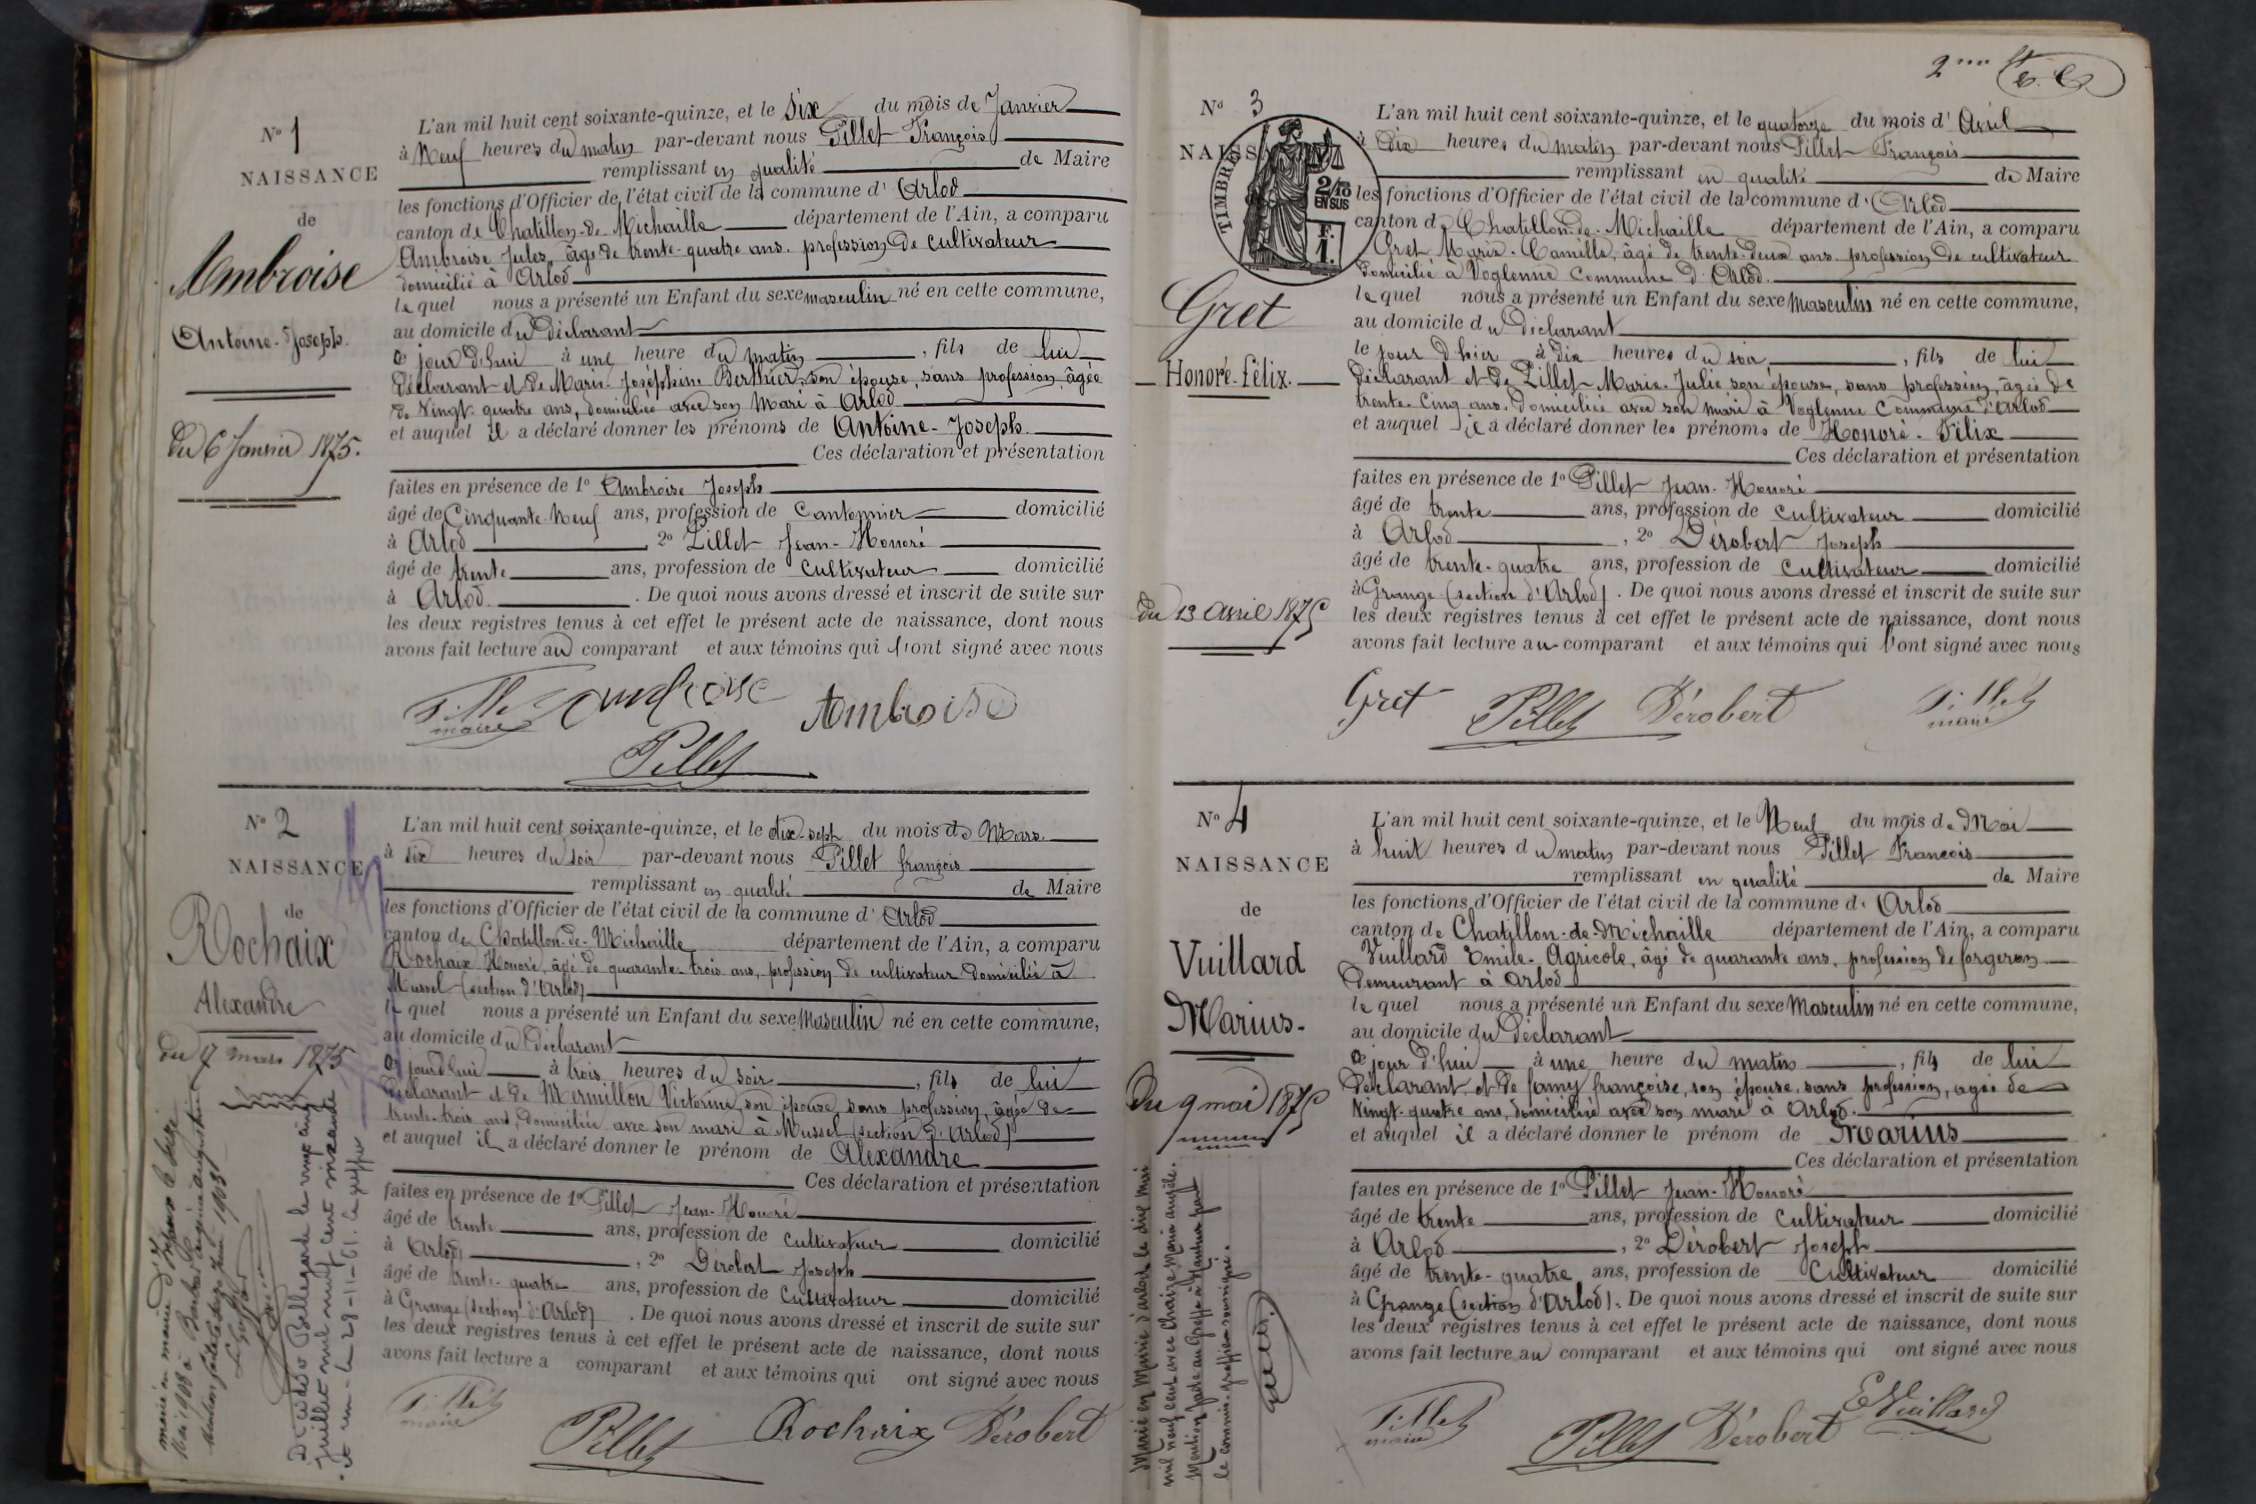 N° 1
NAISSANCE
de
Ambroise
Antoine-Joseph.
du 6 Janvier 1875.
L'an mil huit cent soixante-quinze, et le Six du mois de Janvier
à Neuf heures du matin par-devant nous Pillet François
remplissant en qualité de Maire
les fonctions d'Officier de l'état civil de la commune d' Arlod
canton de Chatillon-de-Michaille département de l'Ain, a comparu
Ambroise Jules, âgé de trente-quatre ans. profession de cultivateur
domicilié à Arlod
lequel nous a présenté un Enfant du sexe masculin né en cette commune,
au domicile du déclarant
ce jour d'hui à une heure du matin, fils de lui
déclarant et de Marie-Joséphine Berthier, son épouse, sans profession, âgée
de Vingt-quatre ans, domiciliée avec son Mari à Arlod
et auquel il a déclaré donner les prénoms de Antoine-Joseph.
Ces déclaration et présentation
faites en présence de 1° Ambroise Joseph
âgé de Cinquante-Neuf ans, profession de Cantonnier domicilié
à Arlod, 2° Pillet Jean-Honoré
âgé de trente ans, profession de Cultivateur domicilié
à Arlod. De quoi nous avons dressé et inscrit de suite sur
les deux registres tenus à cet effet le présent acte de naissance, dont nous
avons fait lecture au comparant et aux témoins qui l'ont signé avec nous
Pillet Ambroise Ambroise
maire
Pillet
N° 2
NAISSANCE
de
Rochaix
Alexandre
du 17 mars 1875
L'an mil huit cent soixante-quinze, et le dix-sept du mois de Mars.
à six heures du soir par-devant nous Pillet françois
remplissant en qualité de Maire
les fonctions d'Officier de l'état civil de la commune d' Arlod
canton de Chatillon-de-Michaille département de l'Ain, a comparu
Rochaix Honoré, âgé de quarante-trois ans, profession de cultivateur domicilié à
Mussel (section d'Arlod)
lequel nous a présenté un Enfant du sexe Masculin né en cette commune,
au domicile du déclarant
ce jourd'hui à trois heures du soir, fils de lui
déclarant et de Mermillon Victorine, son épouse, sans profession, âgée de
trente-trois ans, domiciliée avec son mari à Mussel (section d'Arlod)
et auquel il a déclaré donner le prénom de Alexandre
Ces déclaration et présentation
faites en présence de 1° Pillet Jean-Honoré
âgé de trente ans, profession de Cultivateur domicilié
à Arlod, 2° Dérobert Joseph
âgé de trente-quatre ans, profession de Cultivateur domicilié
à Grange (section d'Arlod). De quoi nous avons dressé et inscrit de suite sur
les deux registres tenus à cet effet le présent acte de naissance, dont nous
avons fait lecture a comparant et aux témoins qui ont signé avec nous
Pillet
maire
Pillet Rochaix Dérobert
marié en mairie d' le seize
Mai 1903 à
Mention faite le Juin 1903
Le Greffier
Décédé à Bellegarde le vingt cinq
Juillet mil neuf cent soixante
et un - le 29-11-61. le greffier
2me
N° 3
NAISS
TIMBRES
2/10
EN SUS
F.
1.
Gret
Honoré-félix.
du 13 Avril 1875
L'an mil huit cent soixante-quinze, et le quatorze du mois d' Avril
à dix heures du matin par-devant nous Pillet François
remplissant en qualité de Maire
les fonctions d'Officier de l'état civil de la commune d' Arlod
canton de Chatillon-de-Michaille département de l'Ain, a comparu
Gret Marie-Camille, âgé de trente-deux ans profession de cultivateur
domicilié à Voglenne Commune d'Arlod.
lequel nous a présenté un Enfant du sexe Masculin né en cette commune,
au domicile du déclarant
le jour d'hier à dix heures du soir, fils de lui
déclarant et de Pillet Marie-Julie son épouse, sans profession, âgée de
trente-Cinq ans. domiciliée avec son mari à Voglenne Commune d'Arlod
et auquel il a déclaré donner les prénoms de Honoré-Félix
Ces déclaration et présentation
faites en présence de 1° Pillet Jean-Honoré
âgé de trente ans, profession de cultivateur domicilié
à Arlod, 2° Dérobert Joseph
âgé de trente-quatre ans, profession de cultivateur domicilié
à Grange (section d'Arlod). De quoi nous avons dressé et inscrit de suite sur
les deux registres tenus à cet effet le présent acte de naissance, dont nous
avons fait lecture au comparant et aux témoins qui l'ont signé avec nous
Gret Pillet Dérobert Pillet
maire
N° 4
NAISSANCE
de
Vuillard
Marius-
Du 9 mai 1875
L'an mil huit cent soixante-quinze, et le Neuf du mois de Mai
à huit heures du matin par-devant nous Pillet Francois
remplissant en qualité de Maire
les fonctions d'Officier de l'état civil de la commune d' Arlod
canton de Chatillon-de-Michaille département de l'Ain, a comparu
Vuillard Emile-Agricole, âgé de quarante ans, profession de forgeron
Demeurant à Arlod
lequel nous a présenté un Enfant du sexe Masculin né en cette commune,
au domicile du Déclarant
ce jour d'hui à une heure du matin, fils de lui
Déclarant et de fanny françoise, son épouse, sans profession, âgée de
Vingt-quatre ans, domiciliée avec son mari à Arlod.
et auquel il a déclaré donner le prénom de Marius
Ces déclaration et présentation
faites en présence de 1° Pillet Jean-Honoré
âgé de trente ans, profession de cultivateur domicilié
à Arlod, 2° Dérobert Joseph
âgé de trente-quatre ans, profession de Cultivateur domicilié
à Grange (section d'Arlod). De quoi nous avons dressé et inscrit de suite sur
les deux registres tenus à cet effet le présent acte de naissance, dont nous
avons fait lecture au comparant et aux témoins qui ont signé avec nous
Pillet
maire
Pillet Dérobert E Vuillard
Marié en Mairie d'Arlod le dix Mai
mil neuf cent avec Chaix Maria
Mention faite au Greffe à Nantua par
le commis-greffier soussigné.